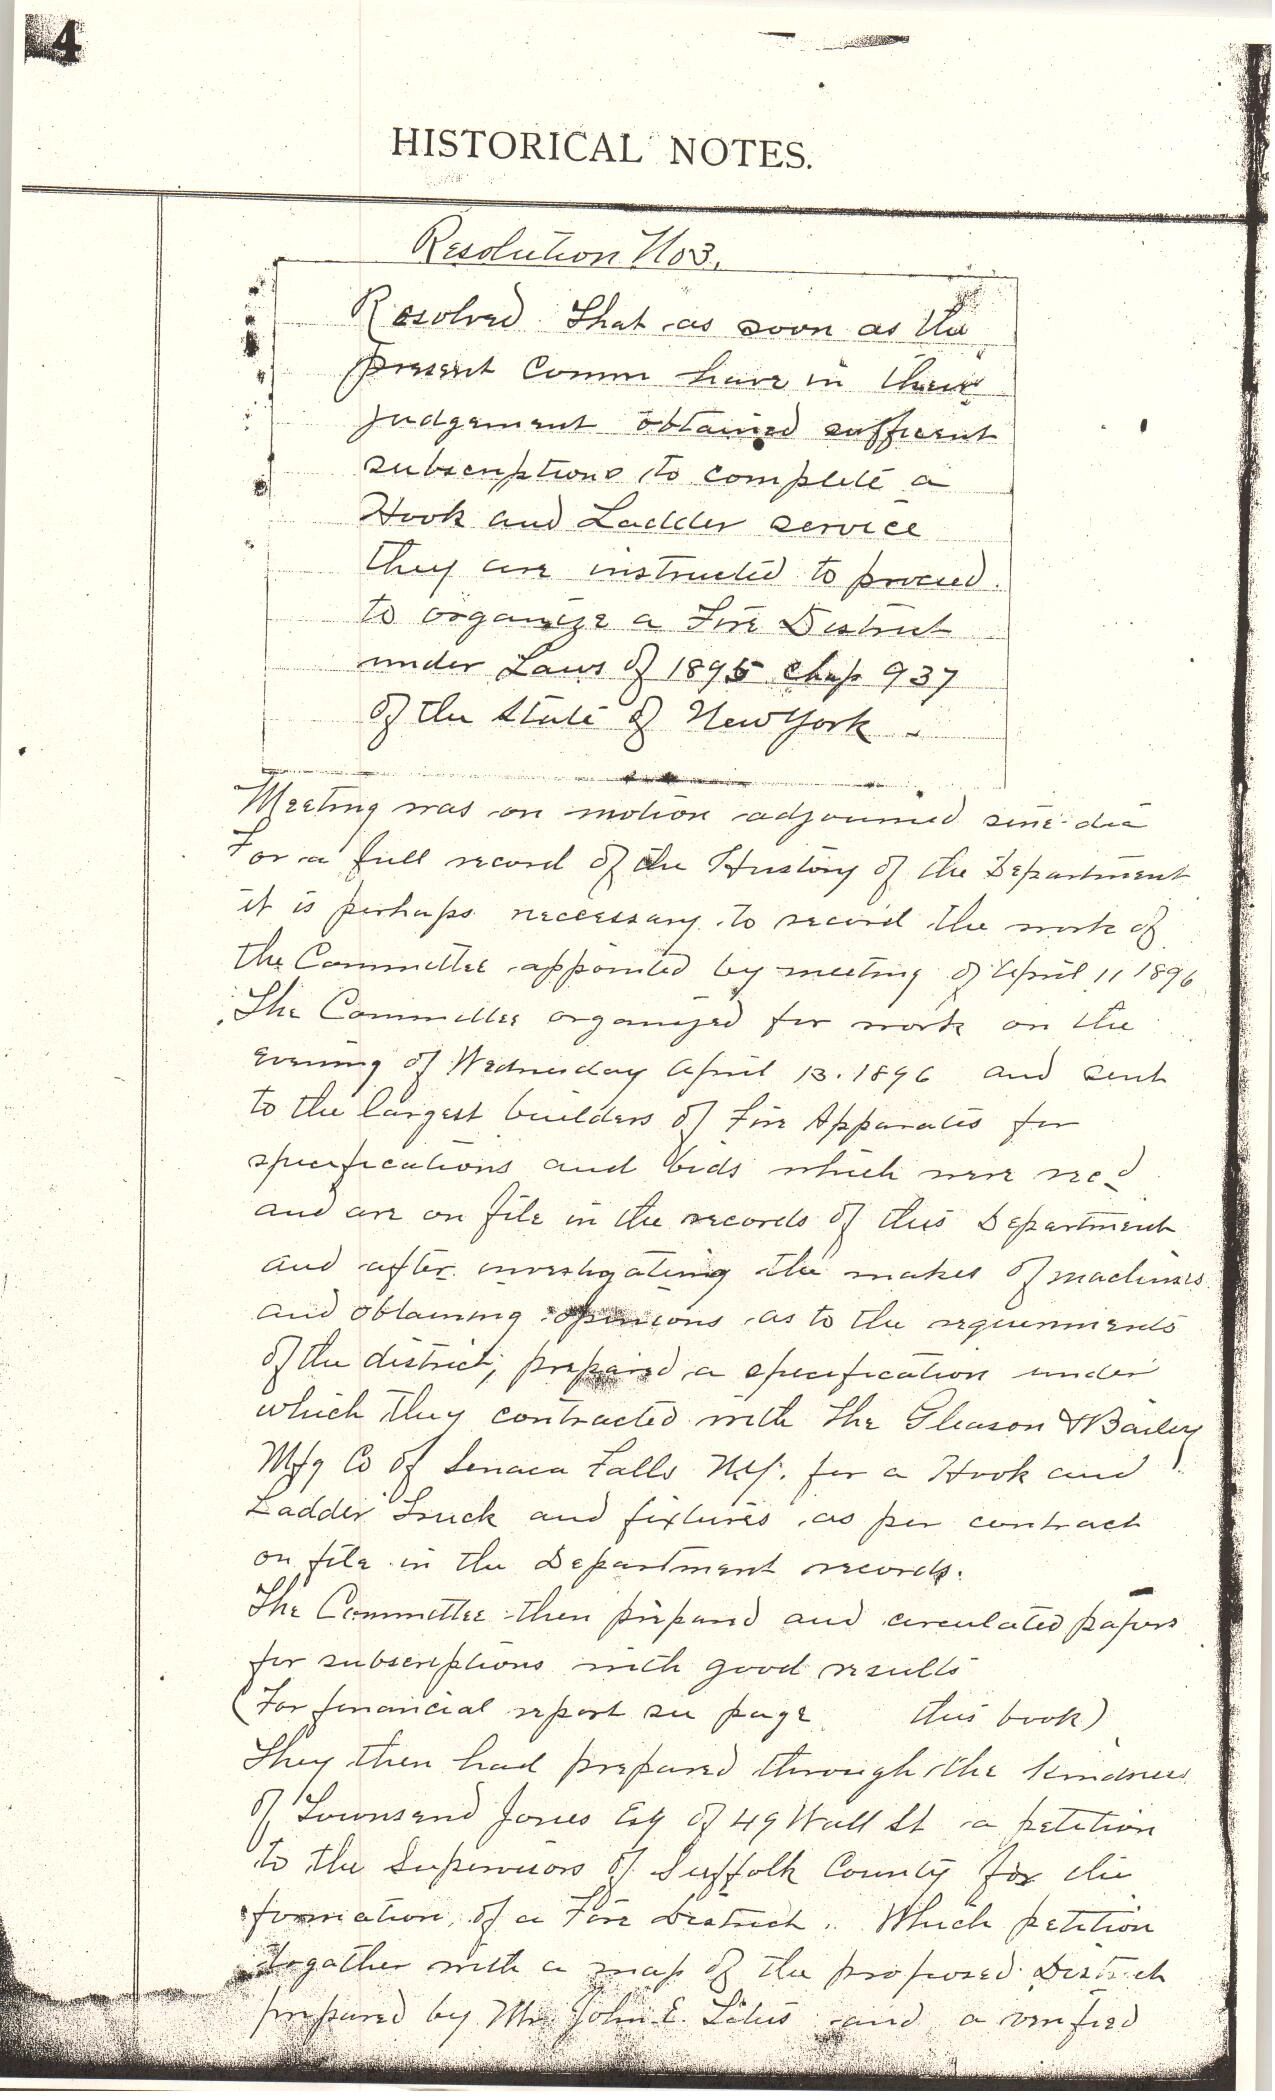 4
HISTORICAL NOTES.
Resolution No 3.
Resolved That as soon as the
present Comm have in their
judgement obtained sufficent
subscriptions to complete a
Hook and Ladder service
they are instructed to proceed
to organize a Fire District
under Laws of 1895 chap 937
of the State of New York.
Meeting was on motion adjourned sine-die
For a full record of the History of the Department
it is perhaps necessary to record the work of
the Committee appointed by meeting of April 11 1896
The Committee organized for work on the
evening of Wednesday April 13. 1896 and sent
to the largest builders of Fire Apparatis for
specifications and bids which were recd
and are on file in the records of this Department
and after investigating the makes of machines
and obtaining opinions as to the requirements
of the district, prepared a specification under
which they contracted with The Gleason & Bailey
Mfg Co of Senaca Falls N.Y. for a Hook and
Ladder Truck and fixtures as per contract
on file in the Department records.
The Committee then prepared and circulated papers
for subscriptions with good results
(For financial report see page this book)
They then had prepared through the kindness
of Townsend Jones Esq of 49 Wall St a petition
to the Supervisors of Suffolk County for the
formation of a Fire District. Which petition
together with a map of the proposed District
prepared by Mr John E. and a verified